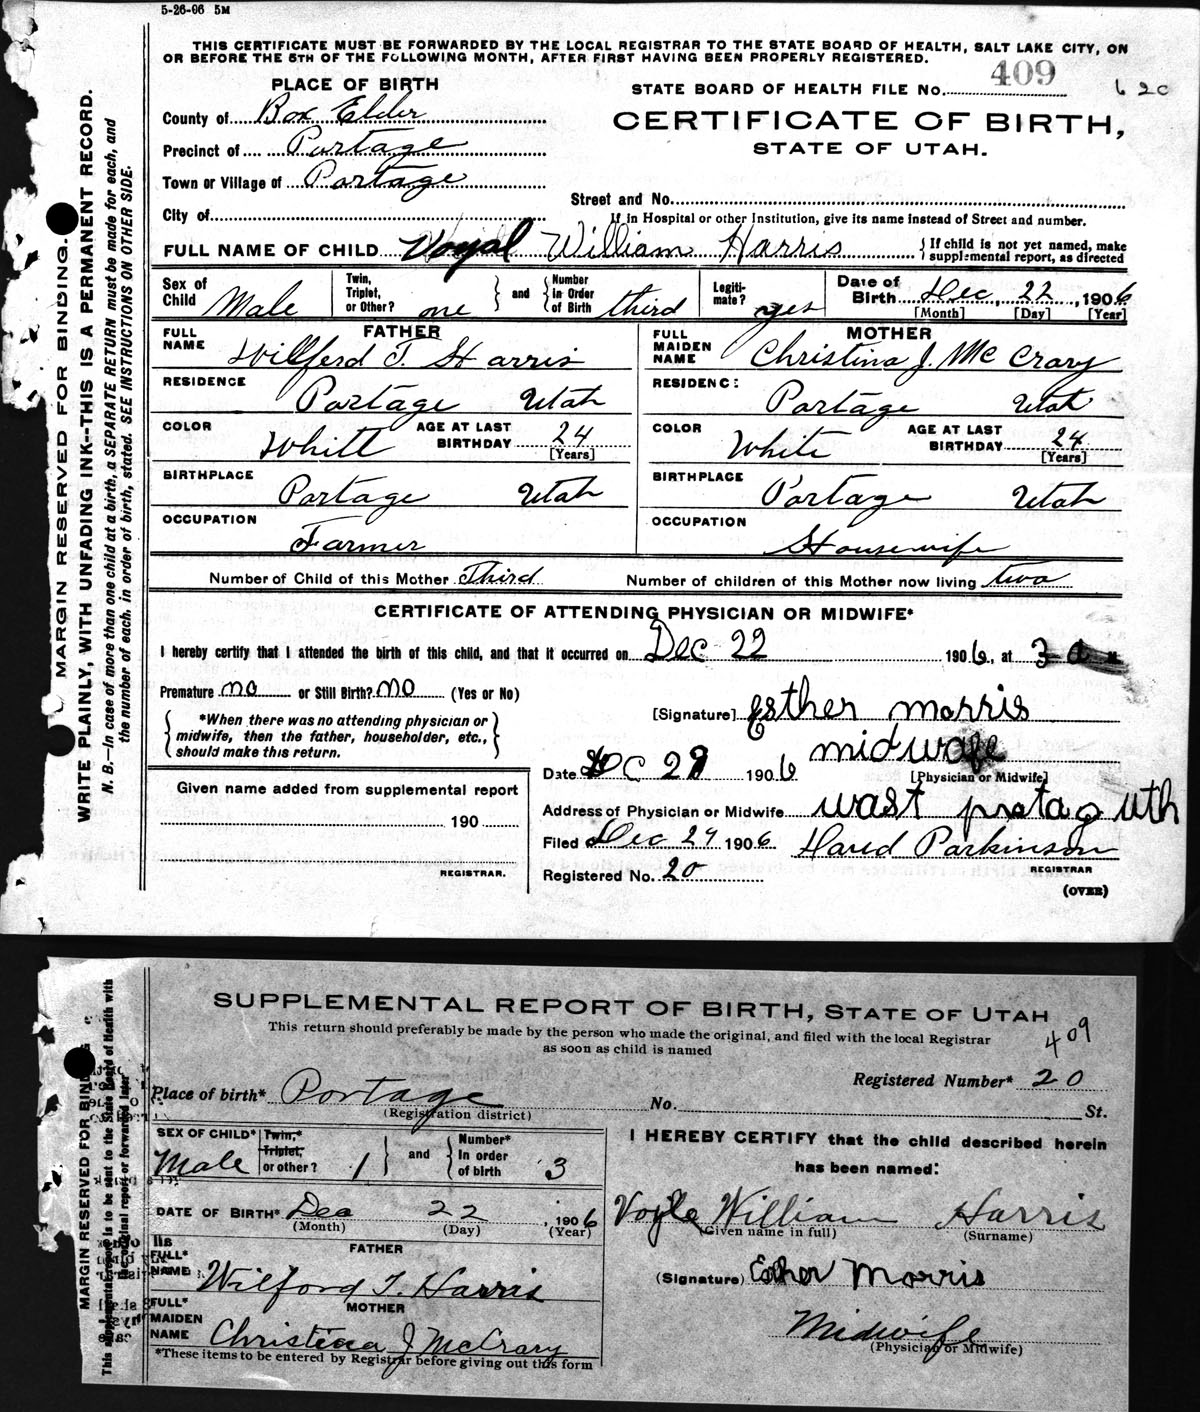 5-26-06 5M
THIS CERTIFICATE MUST BE FORWARDED BY THE LOCAL REGISTRAR TO THE STATE BOARD OF HEALTH, SALT LAKE CITY, ON
OR BEFORE THE 5TH OF THE FOLLOWING MONTH, AFTER FIRST HAVING BEEN PROPERLY REGISTERED.
PLACE OF BIRTH
STATE BOARD OF HEALTH FILE No. 409
620
County of Box Elder
CERTIFICATE OF BIRTH,
Precinct of Portage
STATE OF UTAH.
Town or Village of Portage
Street and No.
City of
If in Hospital or other Institution, give its name instead of Street and number.
FULL NAME OF CHILD Voyal William Harris
If child is not yet named, make
supplemental report, as directed
Sex of Child Male
Twin, Triplet, or Other? one
and
Number in Order of Birth third
Legiti-mate? yes
Date of Birth Dec, 22, 1906
[Month] [Day] [Year]
FATHER
FULL NAME Willferd T. Harris
MOTHER
FULL MAIDEN NAME Christina J. McCrary
RESIDENCE Portage Utah
RESIDENC: Portage Utah
COLOR Whitt AGE AT LAST BIRTHDAY 24 [Years]
COLOR White AGE AT LAST BIRTHDAY 24 [Years]
BIRTHPLACE Portage Utah
BIRTHPLACE Portage Utah
OCCUPATION Farmer
OCCUPATION Housewife
Number of Child of this Mother Third Number of children of this Mother now living two
CERTIFICATE OF ATTENDING PHYSICIAN OR MIDWIFE*
I hereby certify that I attended the birth of this child, and that it occurred on Dec 22 1906, at 3 a M
Premature no or Still Birth? no (Yes or No)
[Signature] Esther morris
*When there was no attending physician or
midwife, then the father, householder, etc.,
should make this return.
midwafe
Date Dec 29 1906
[Physician or Midwife]
Given name added from supplemental report
190
REGISTRAR.
Address of Physician or Midwife wast protag uth
Filed Dec 29 1906 Parkinson
REGISTRAR
Registered No. 20
(OVER)
MARGIN RESERVED FOR BINDING.
WRITE PLAINLY, WITH UNFADING INK--THIS IS A PERMANENT RECORD.
N. B.—In case of more than one child at a birth, a SEPARATE RETURN must be made for each, and
the number of each, in order of birth, stated. SEE INSTRUCTIONS ON OTHER SIDE.
SUPPLEMENTAL REPORT OF BIRTH, STATE OF UTAH
This return should preferably be made by the person who made the original, and filed with the local Registrar
as soon as child is named
409
Registered Number* 20
Place of birth* Portage No. St.
(Registration district)
SEX OF CHILD* Male
Twin,* Triplet, or other? 1
and
Number* In order of birth 3
I HEREBY CERTIFY that the child described herein
has been named:
DATE OF BIRTH* Dec 22, 1906
(Month) (Day) (Year)
Voyle William Harris
(Given name in full) (Surname)
FATHER
FULL* NAME Wilford T. Harris
(Signature) Esther Morris
MOTHER
FULL* MAIDEN NAME Christina J McCrary
Midwife
(Physician or Midwife)
*These items to be entered by Registrar before giving out this form
MARGIN RESERVED FOR BINDING
This supplemental report to be sent to the State Board of Health with
the original report or forwarded later